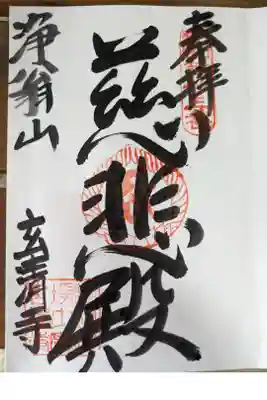 奉拝
慈悲殿
浄翁山
玄清寺